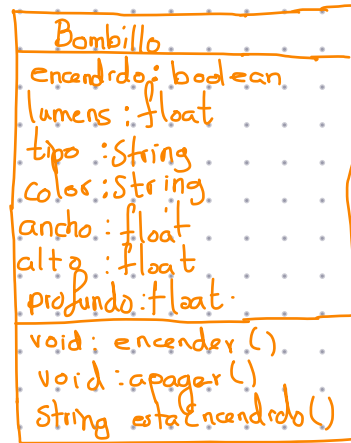 Bombillo
encendrdo: boolean
lumens: float
tipo: String
color: String
ancho: float
alto: float
profundo: float.
void: encender()
void: apagar()
String estaEncendrdo()